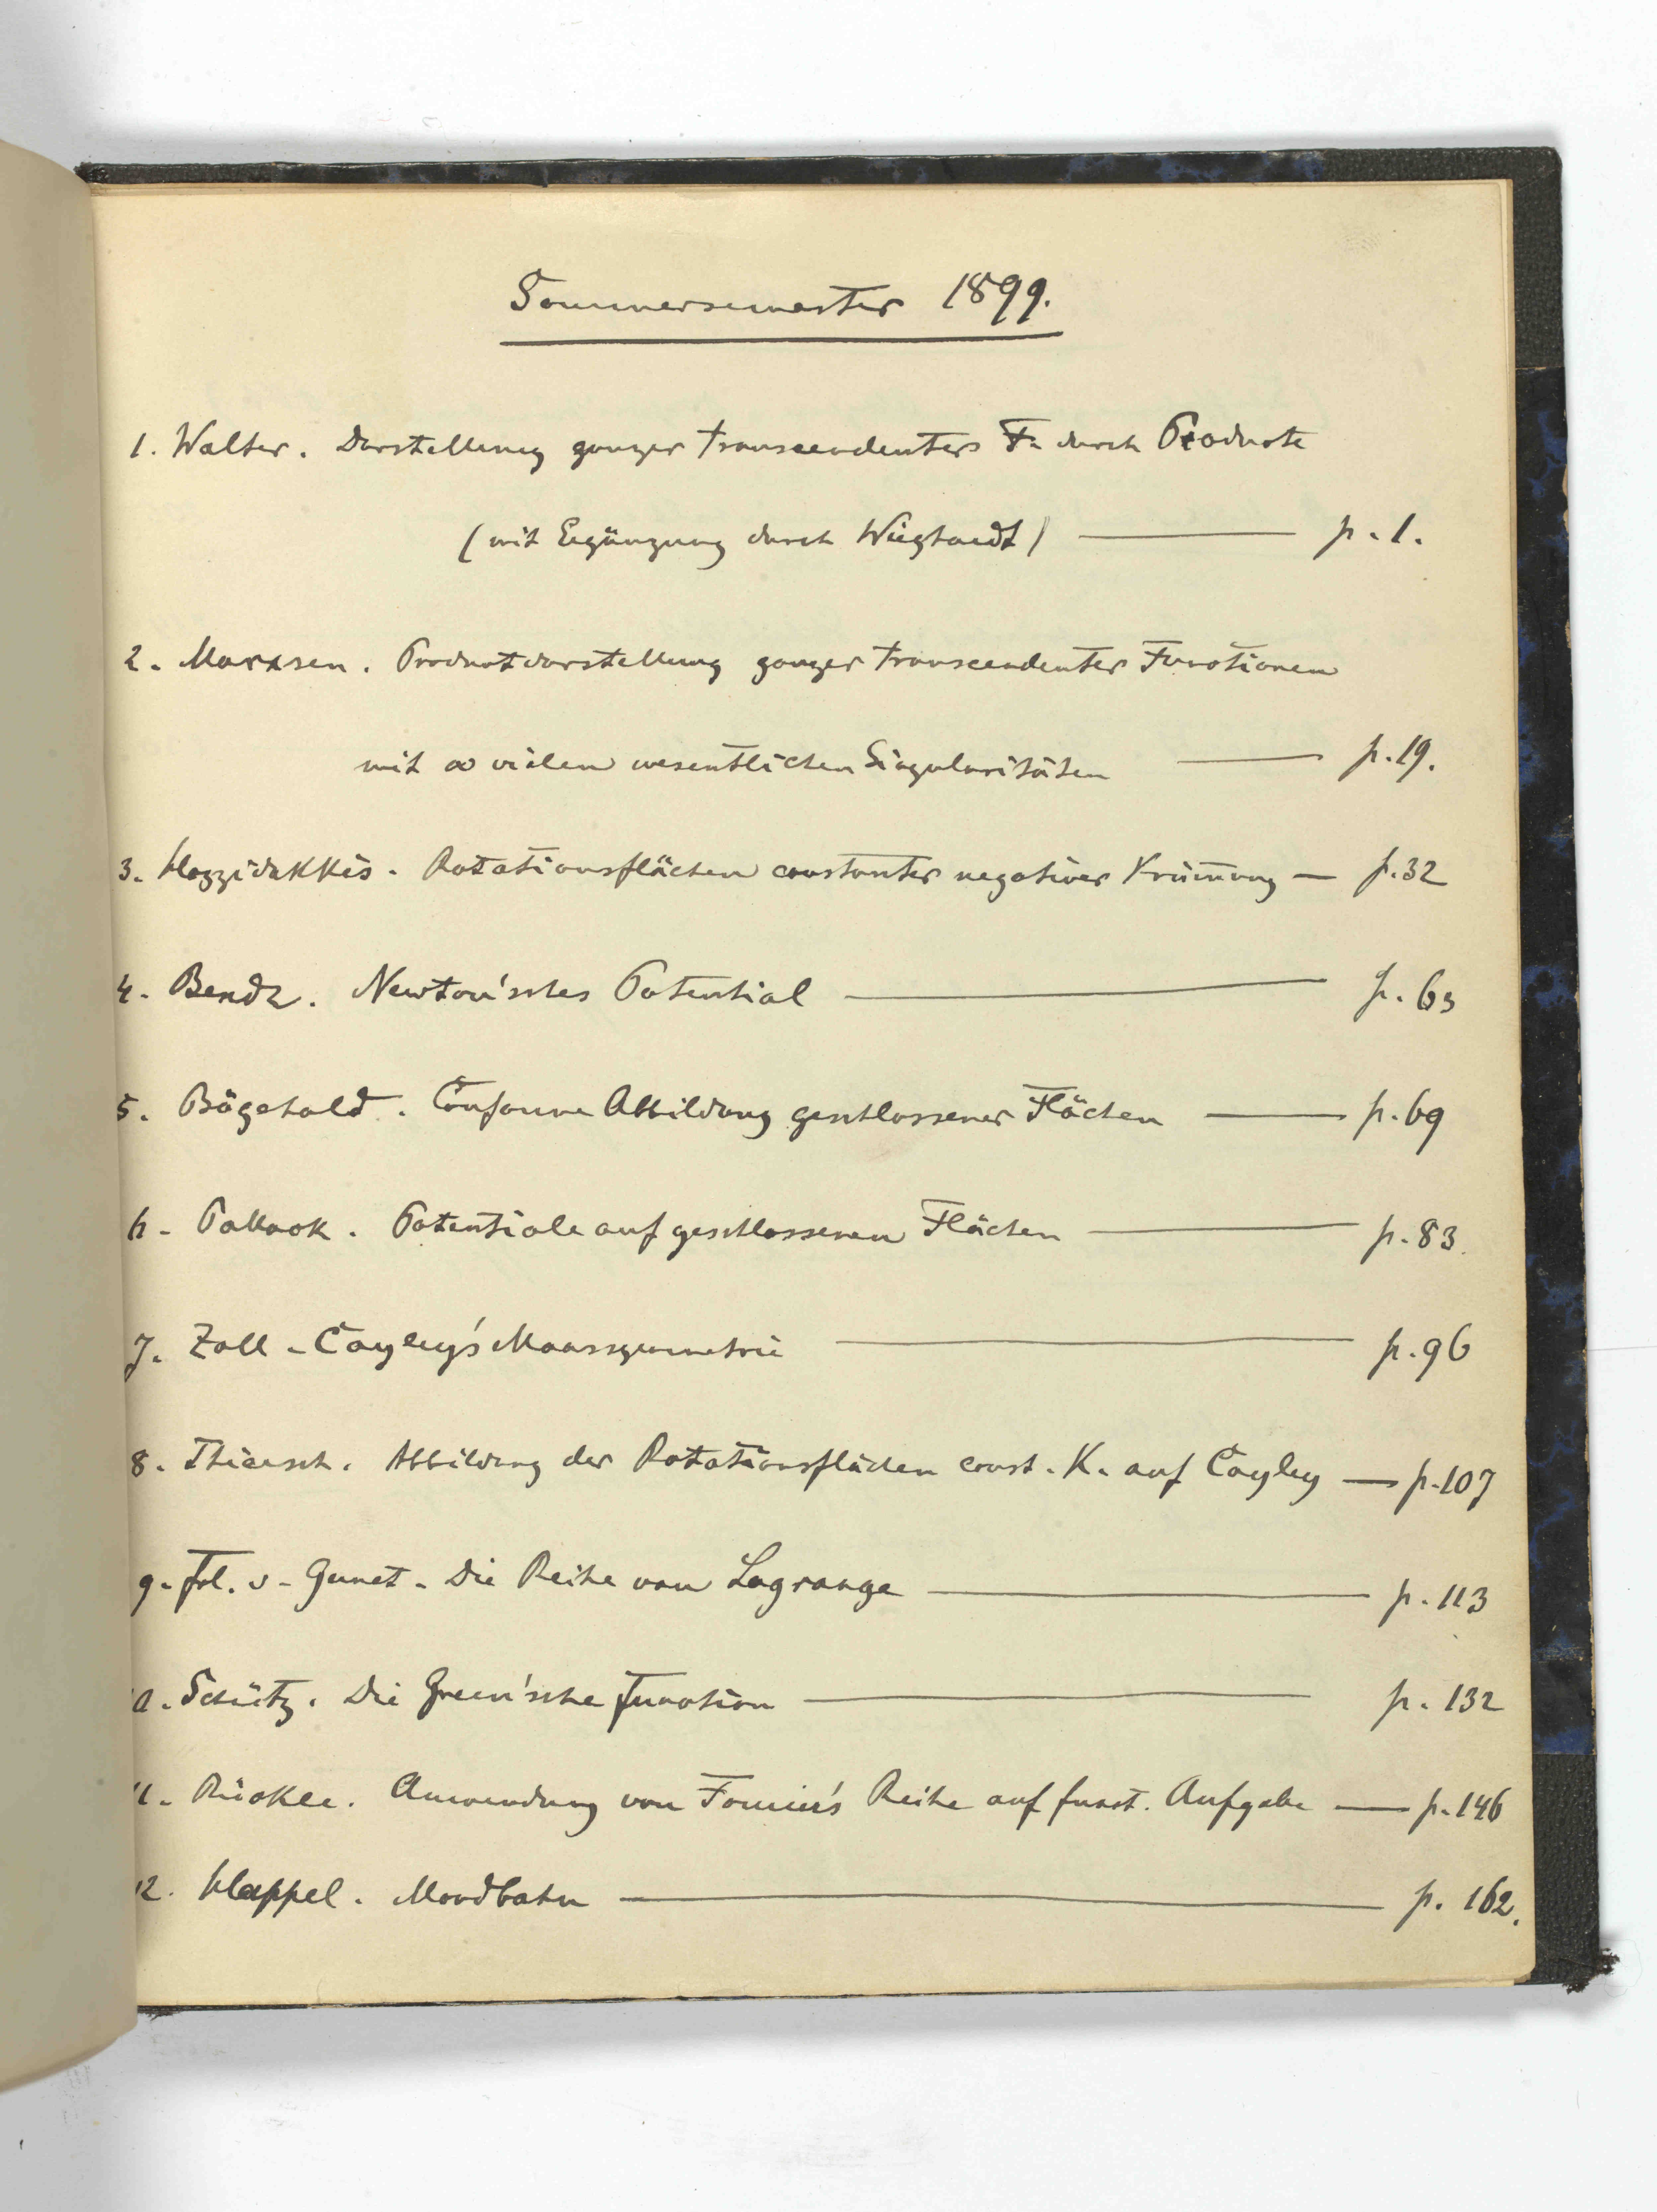 Sommersemester 1899.
1. Walter. Darstellung ganzer transcendenter F. durch Producte
(mit Ergänzung durch Wieghardt) — p. 1.
2. Marxsen. Productdarstellung ganzer transcendenter Functionen
mit ∞ vielen wesentlichen Singularitäten — p. 19.
3. Hazzidakkis. Rotationsflächen constanter negativer Krümung — p. 32
4. Bendz. Newton'sches Potential — p. 63
5. Bögehold. Conforme Abbildung geschlossener Flächen — p. 69
6. Pollack. Potentiale auf geschlossenen Flächen — p. 83.
7. Zoll. Cayley's Maassgeometrie — p. 96
8. Thiersch. Abbildung der Rotationsflächen const. K. auf Cayley — p. 107
9. Frl. v. Gernet. Die Reihe von Lagrange — p. 113
10. Schütz. Die Green'sche Function — p. 132
11. Rückle. Anwendung von Fourier's Reihe auf funct. Aufgabe — p. 146
12. Happel. Mondbahn — p. 162.